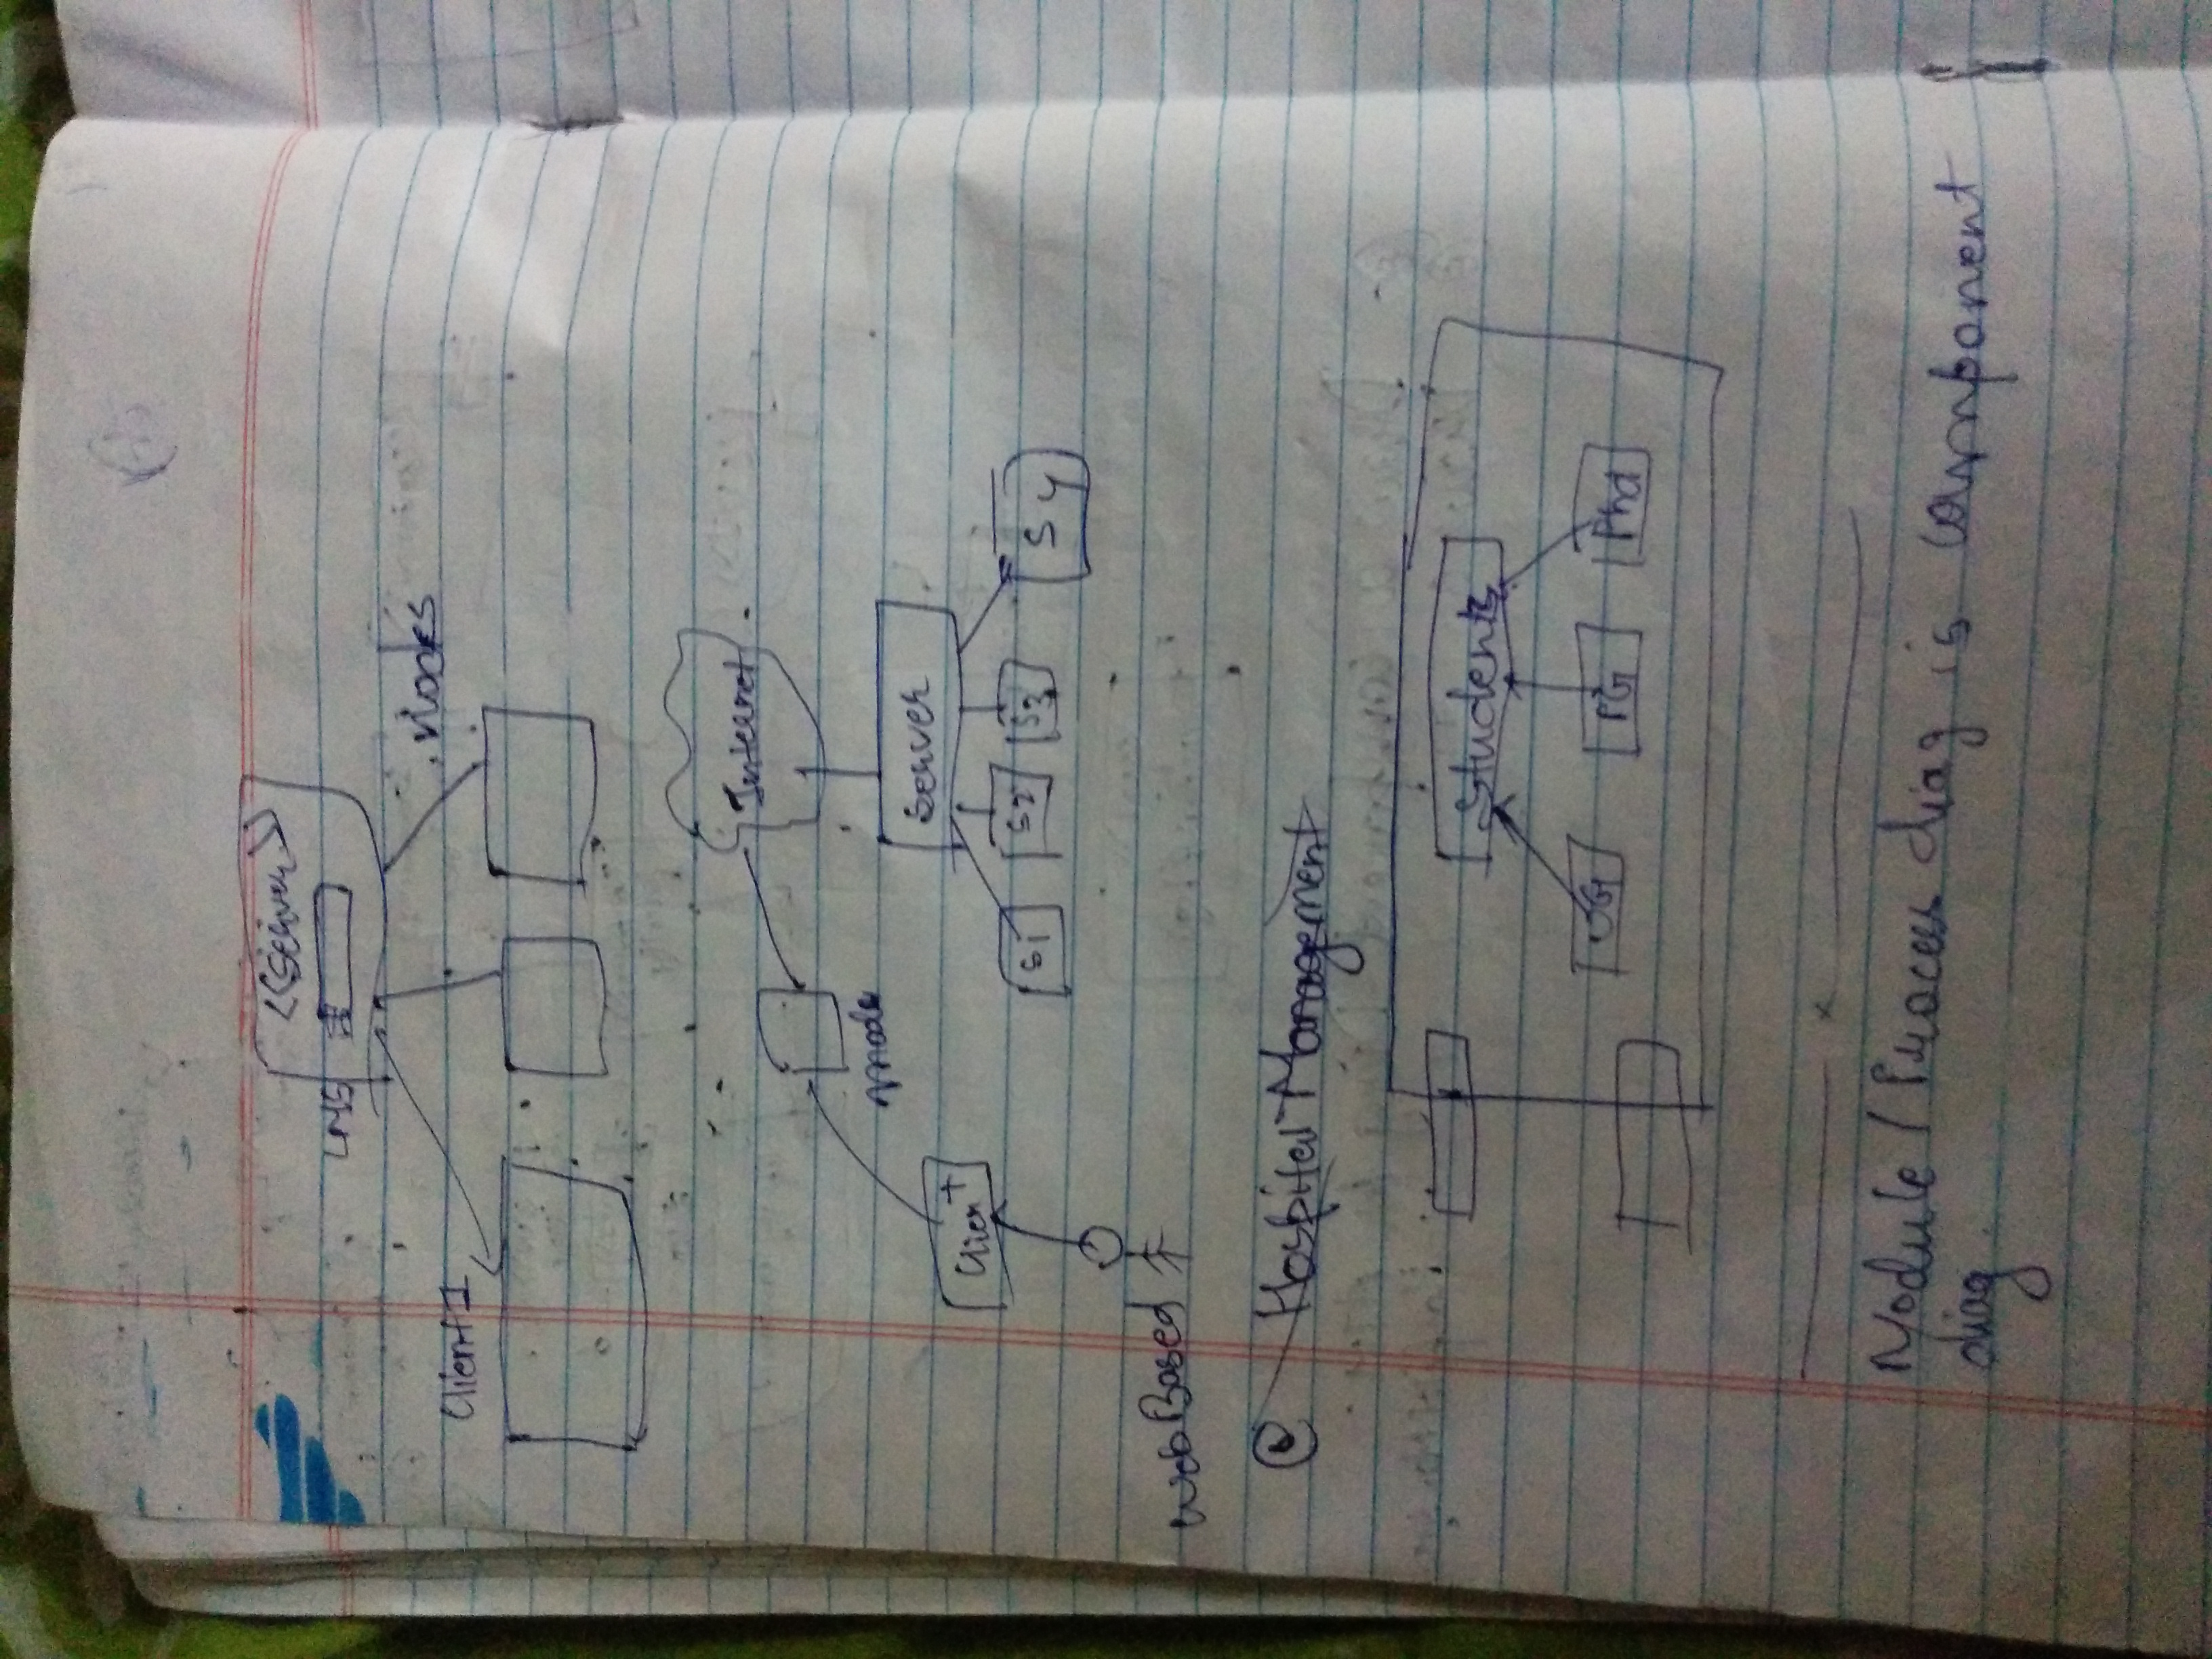 <<Server>>
LMS
Nodes
Client 1
Internet
node
Server
Client
S1
S2
S3
S4
Web Based
Hospital Management
Students
UG
PG
Phd
x
Module / Process diag is component
diag.